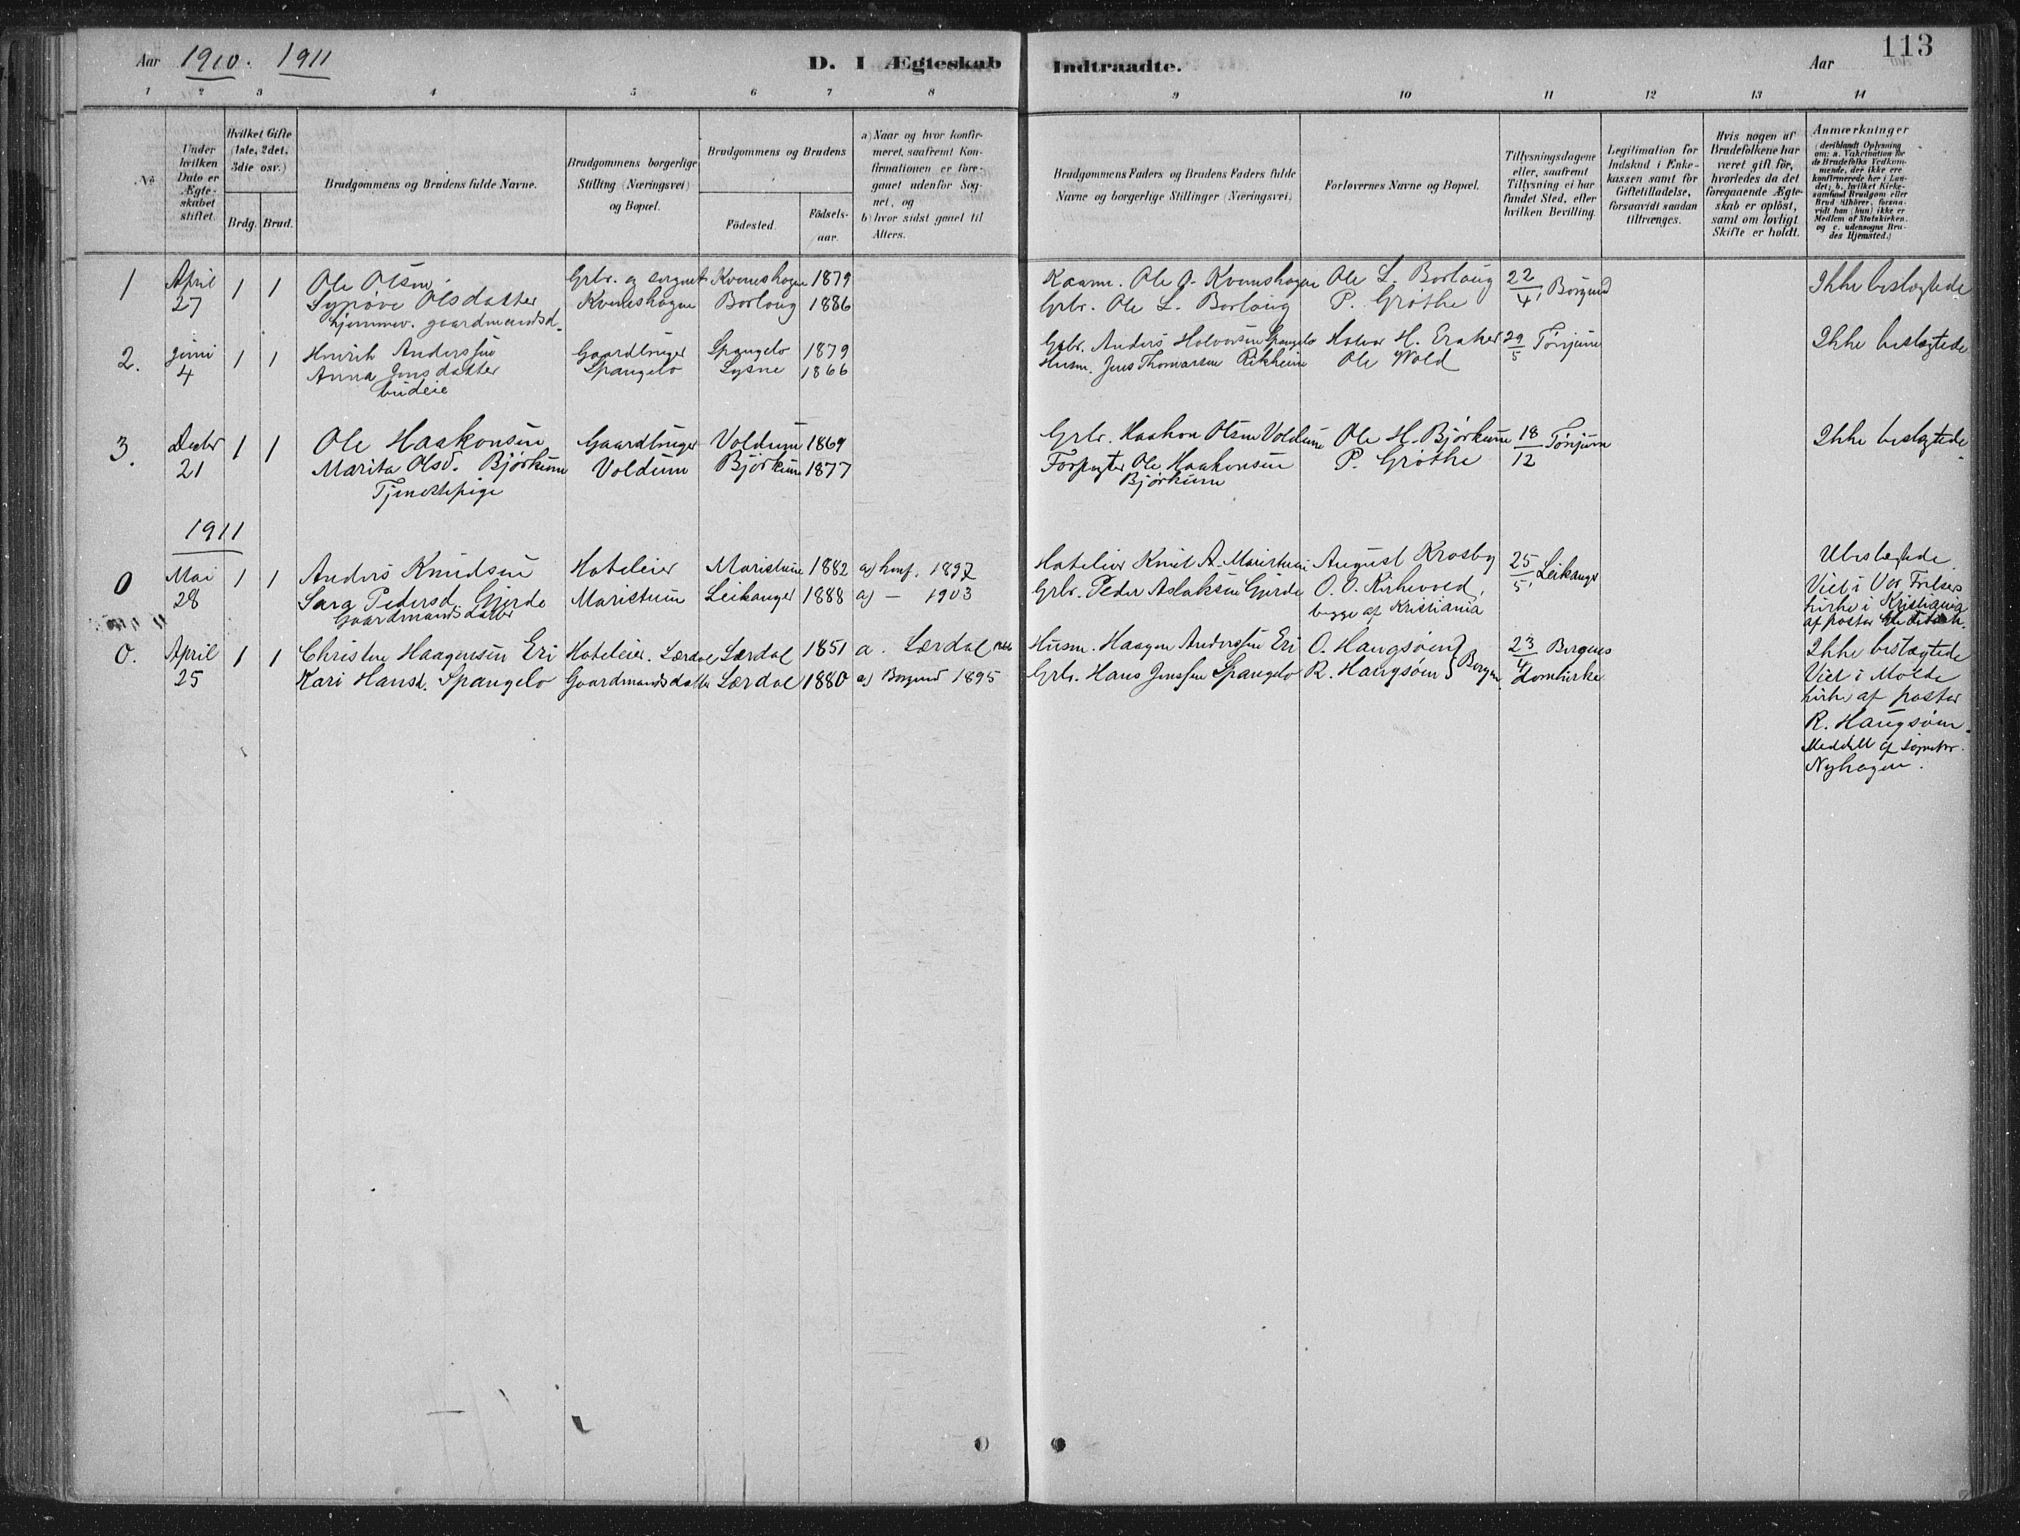 Aar 1910. 1911 D. I Ægteskab Indtraadte. Aar 113
1 2 3 4 5 6 7 8 9 10 11 12 13 14
No.
Under hvilken Dato er Ægteskabet stiftet.
Hvilket Gifte (1ste, 2det, 3die osv.)
Brdg. Brud.
Brudgommens og Brudens fulde Navne.
Brudgommens borgerlige Stilling (Næringsvei) og Bopæl.
Brudgommens og Brudens
Födested.
Födselsaar.
a) Naar og hvor konfirmeret, saafremt Konfirmationen er foregaaet udenfor Sognet, og
b) hvor sidst gaaet til Alters.
Brudgommens Faders og Brudens Faders fulde Navne og borgerlige Stillinger (Næringsvei)
Forlovernes Navne og Bopæl.
Tillysningsdagene eller, saafremt Tillysning ei har fundet Sted, efter hvilken Bevilling.
Legitimation for Indskud i Enkekassen samt for Giftetilladelse, forsaavidt saadan tiltrænges.
Hvis nogen af Brudefolkene har været gift för, hvorledes da det foregaaende Ægteskab er oplöst, samt om lovligt Skifte er holdt.
Anmærkninger (deriblandt Oplysning om: a. Vakcination for de Brudefolks Vedkommende, der ikke ere konfirmerede her i Landet; b. hvilket Kirkesamfund Brudgom eller Brud tilhörer, forsaavidt han (hun) ikke er Medlem af Statskirken. og c. udensogns Brudes Hjemsted.)
1 April 27 1 1 Ole Olsen. Grbr. Kvemshagen Kvemshagen 1879 Kaarm. Ole O. Kvemshagen Ole L. Borlaug 22/4, Borgund Ikke beslægtede
Synøve Olsdatter Borlaug 1886 Grbr. Ole L. Borlaug P. Grøthe
hjemmev. gaardmandsd.
2. Juni 4 1 1 Henrik Anderssen Gaardbruger Spangelo 1879 Grbr. Anders Halvorsen Spangelo Halvor H. Eraker 29/5 Tønjum Ikke beslægtede
Anna Jensdatter Spangelo Lysne 1866 Husm. Jens Thomassen Rikheim Ole Wold
budeie
3. Decbr 21 1 1 Ole Haakonsen Gaardbruger Voldum 1869 Grbr. Haakon Olsen Voldum Ole H. Bjørkum 18/12 Tønjum Ikke beslægtede
Marita Olsd. Bjørkum Voldum Bjørkum 1877 Forpagter Ole Haakonsen P. Grøthe
Tjenestepige Bjørkum
1911
0 Mai 28 1 1 Anders Knudsen Hoteleier Maristuen 1882 a) konf. 1897 Hoteleier Knut A. Maristuen August Krosby 25/5, Leikanger Ubeslægtede.
Sara Pedersd. Gjerde Maristuen Leikanger 1888 a) — 1903 Grbr. Peder Aslaksen Gjerde O. O. Kirkevold, Viet i Vor Frelsers
Gaardmandsdatter begge af Kristiania kirke i Kristiania
af pastor
0. April 25 1 1 Christen Haagensen Eri Hoteleier. Lærdal Lærdal 1851 a. Lærdal Husm. Haagen Anderssen Eri O. Haugsøen 23/4 Bergens Ikke beslægtede
Kari Hansd. Spangelo Gaardmandsdatter Lærdal 1880 a) Borgund 1895 Grbr. Hans Jenssen Spangelo R. Haugsøen } Bergen. Domkirke Viet i Molde
kirke af pastor
R. Haugsøen.
Meddelt af sognepr.
Nyhagen.